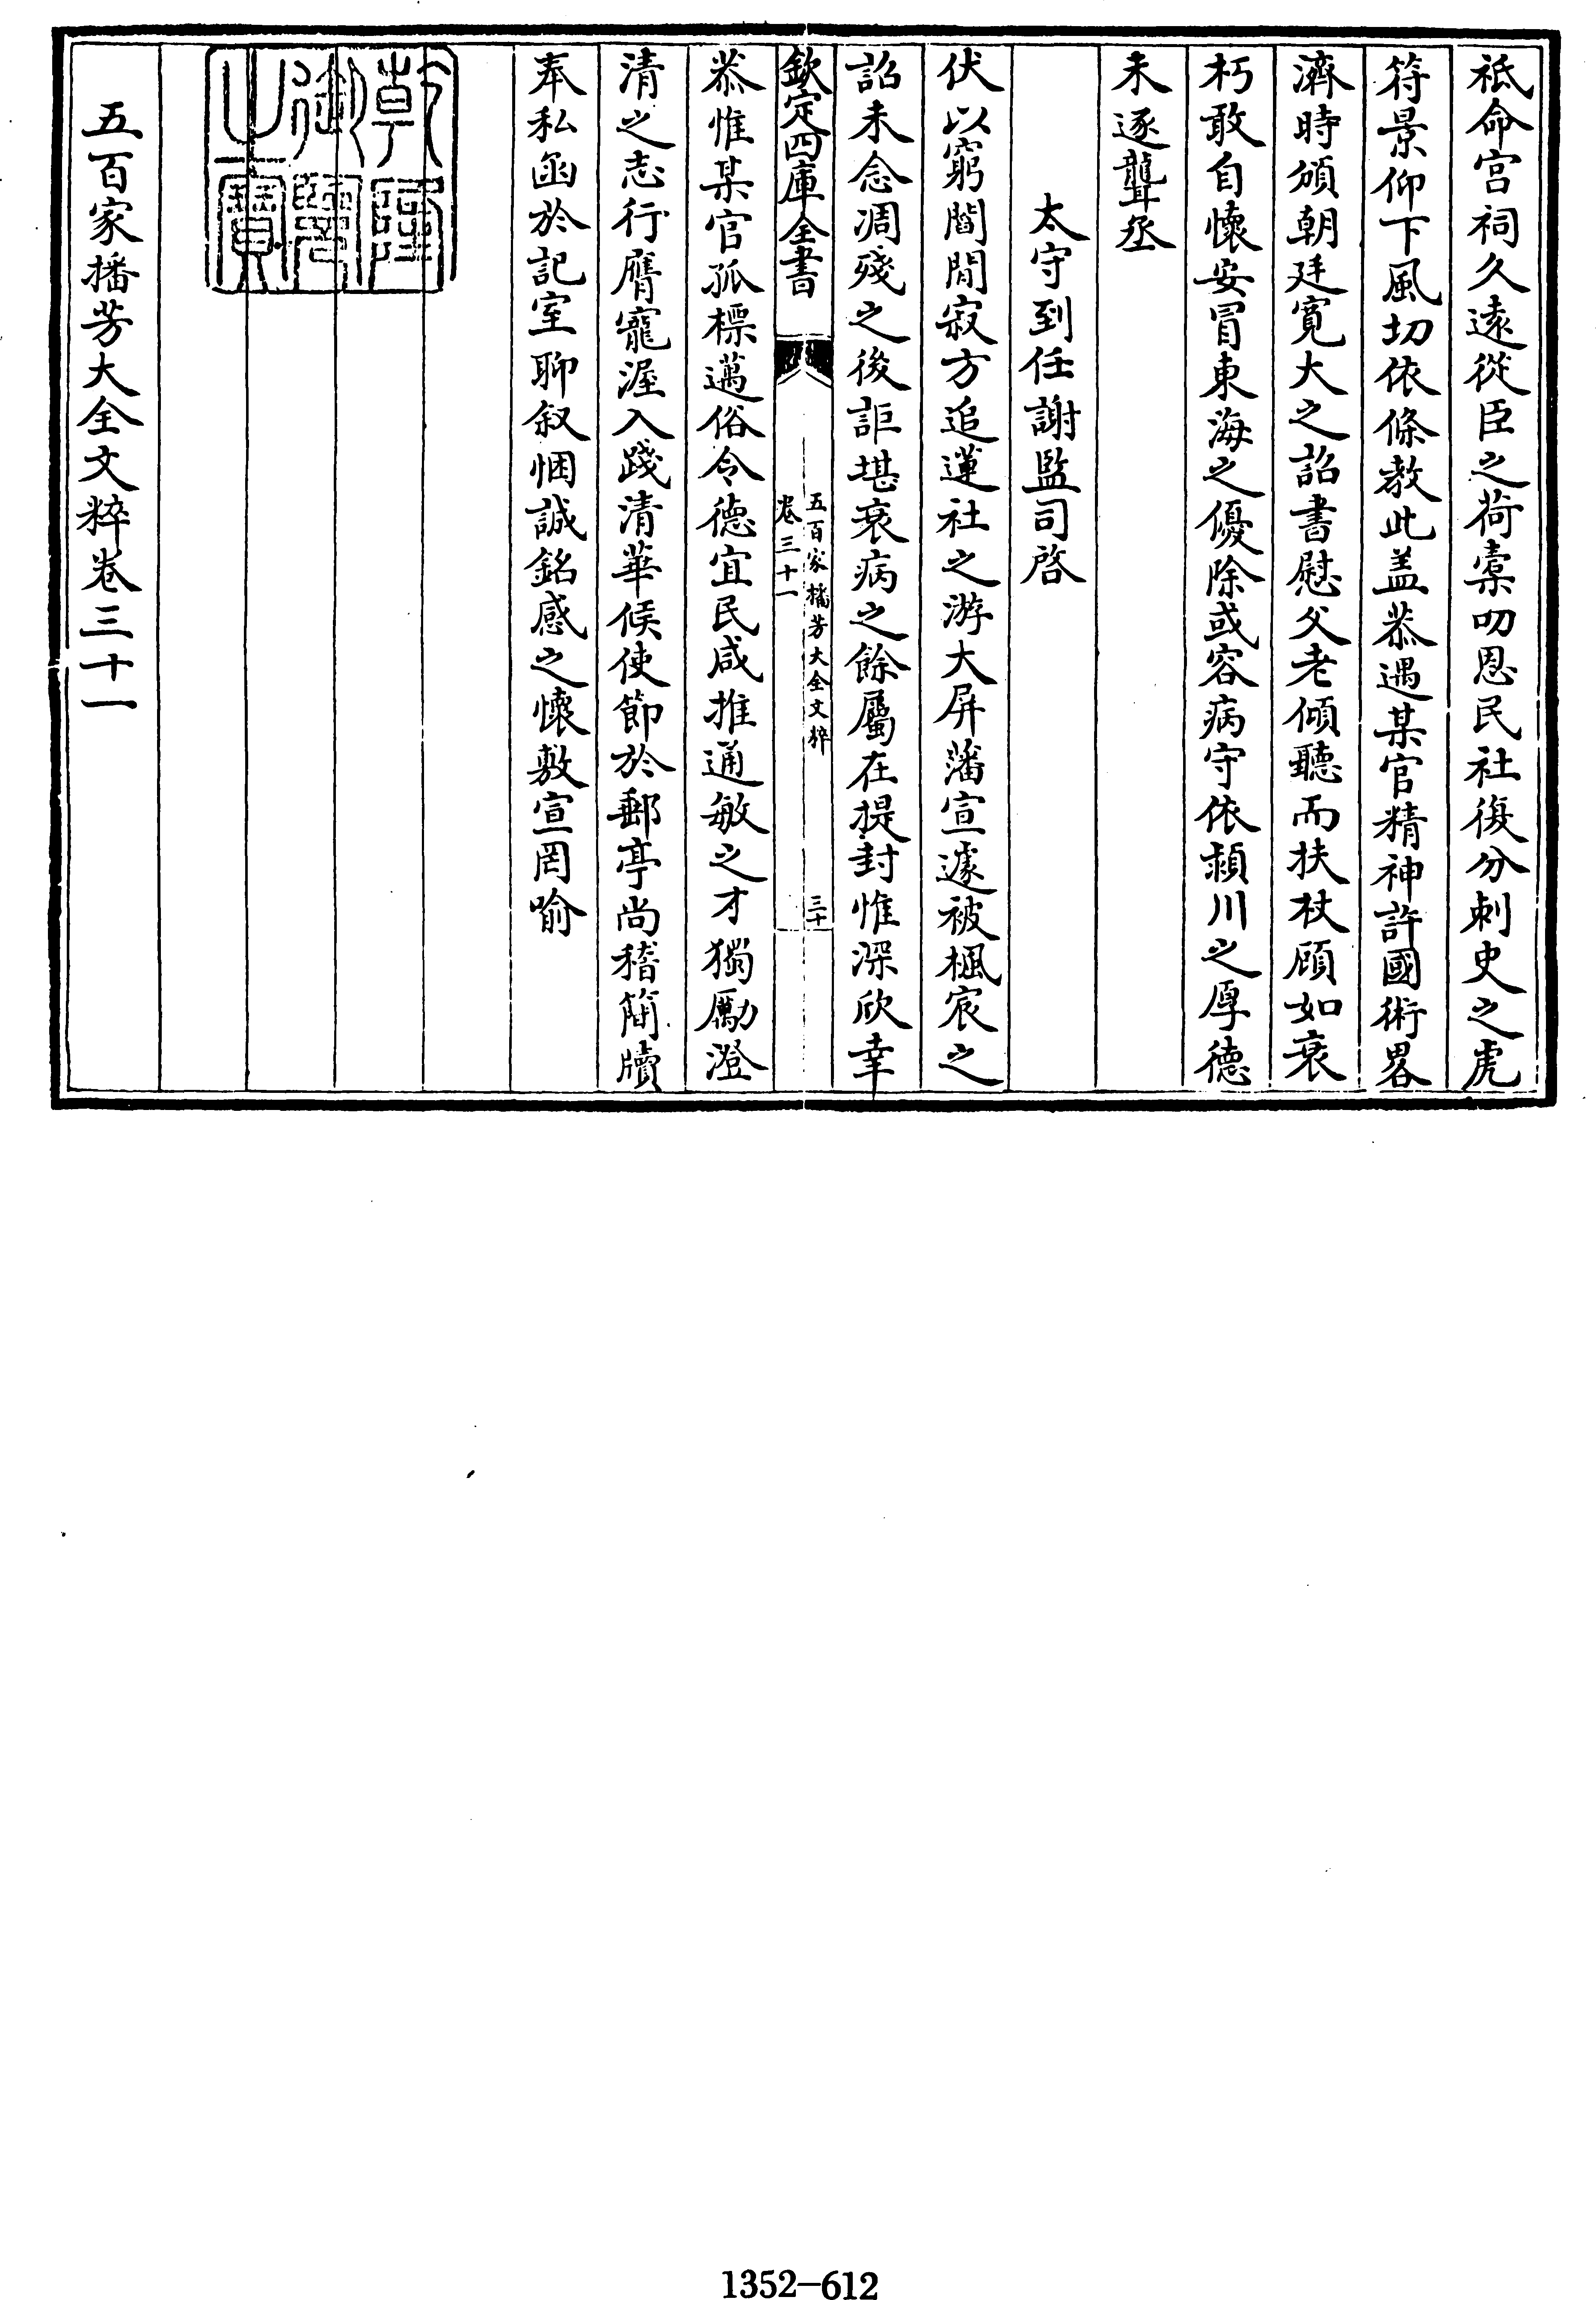 祗命宫祠久逺從臣之荷橐叨恩民社復分刺史之虎
符景仰下風切依條教此盖恭遇某官精神許國術畧
濟時頒朝廷寛大之詔書慰父老傾聽而扶杖顧如衰
朽敢自懐安冒東海之優除或容病守依潁川之厚德
未逐聾丞
太守到任謝監司啓
伏以窮閻閒寂方追蓮社之游大屏藩宣遽被楓宸之
詔未念凋殘之後詎堪衰病之餘屬在提封惟深欣幸
欽定四庫全書
五百家播芳大全文粹
卷三十一
三十
恭惟某官孤標邁俗令德宜民咸推通敏之才獨勵澄
清之志行膺寵渥入踐清華候使節於郵亭尚稽簡牘
奉私函於記室聊叙悃誠銘感之懐敷宣罔喻
乾隆
御覽
之寶
五百家播芳大全文粹卷三十一
1352-612